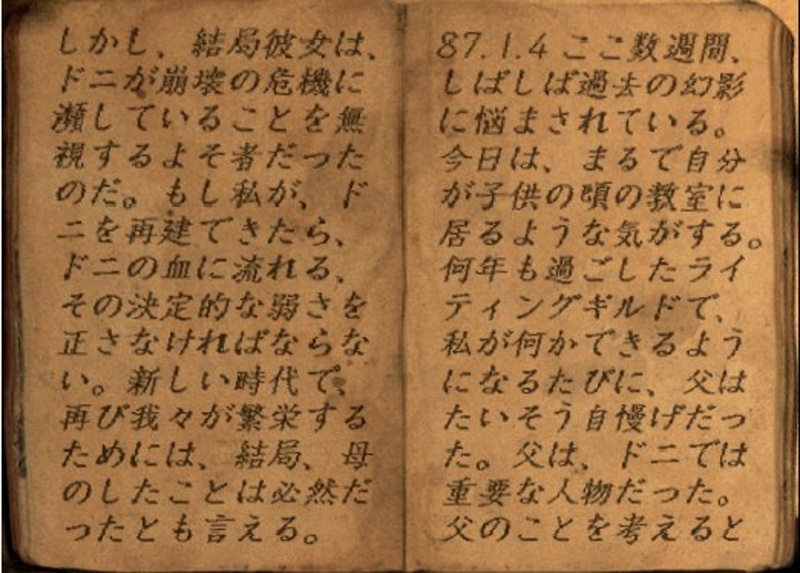 しかし、結局彼女は、
ドニが崩壊の危機に
瀕していることを無
視するよそ者だった
のだ。もし私が、ド
ニを再建できたら、
ドニの血に流れる、
その決定的な弱さを
正さなければならな
い。新しい時代で、
再び我々が繁栄する
ためには、結局、母
のしたことは必然だ
ったとも言える。
87.1.4 ここ数週間、
しばしば過去の幻影
に悩まされている。
今日は、まるで自分
が子供の頃の教室に
居るような気がする。
何年も過ごしたライ
ティングギルドで、
私が何かできるよう
になるたびに、父は
たいそう自慢げだっ
た。父は、ドニでは
重要な人物だった。
父のことを考えると